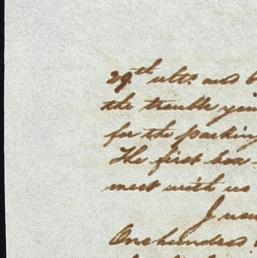 29th ulto. and
the trouble you
for the packing
The first box
meet with us
I
One hundred